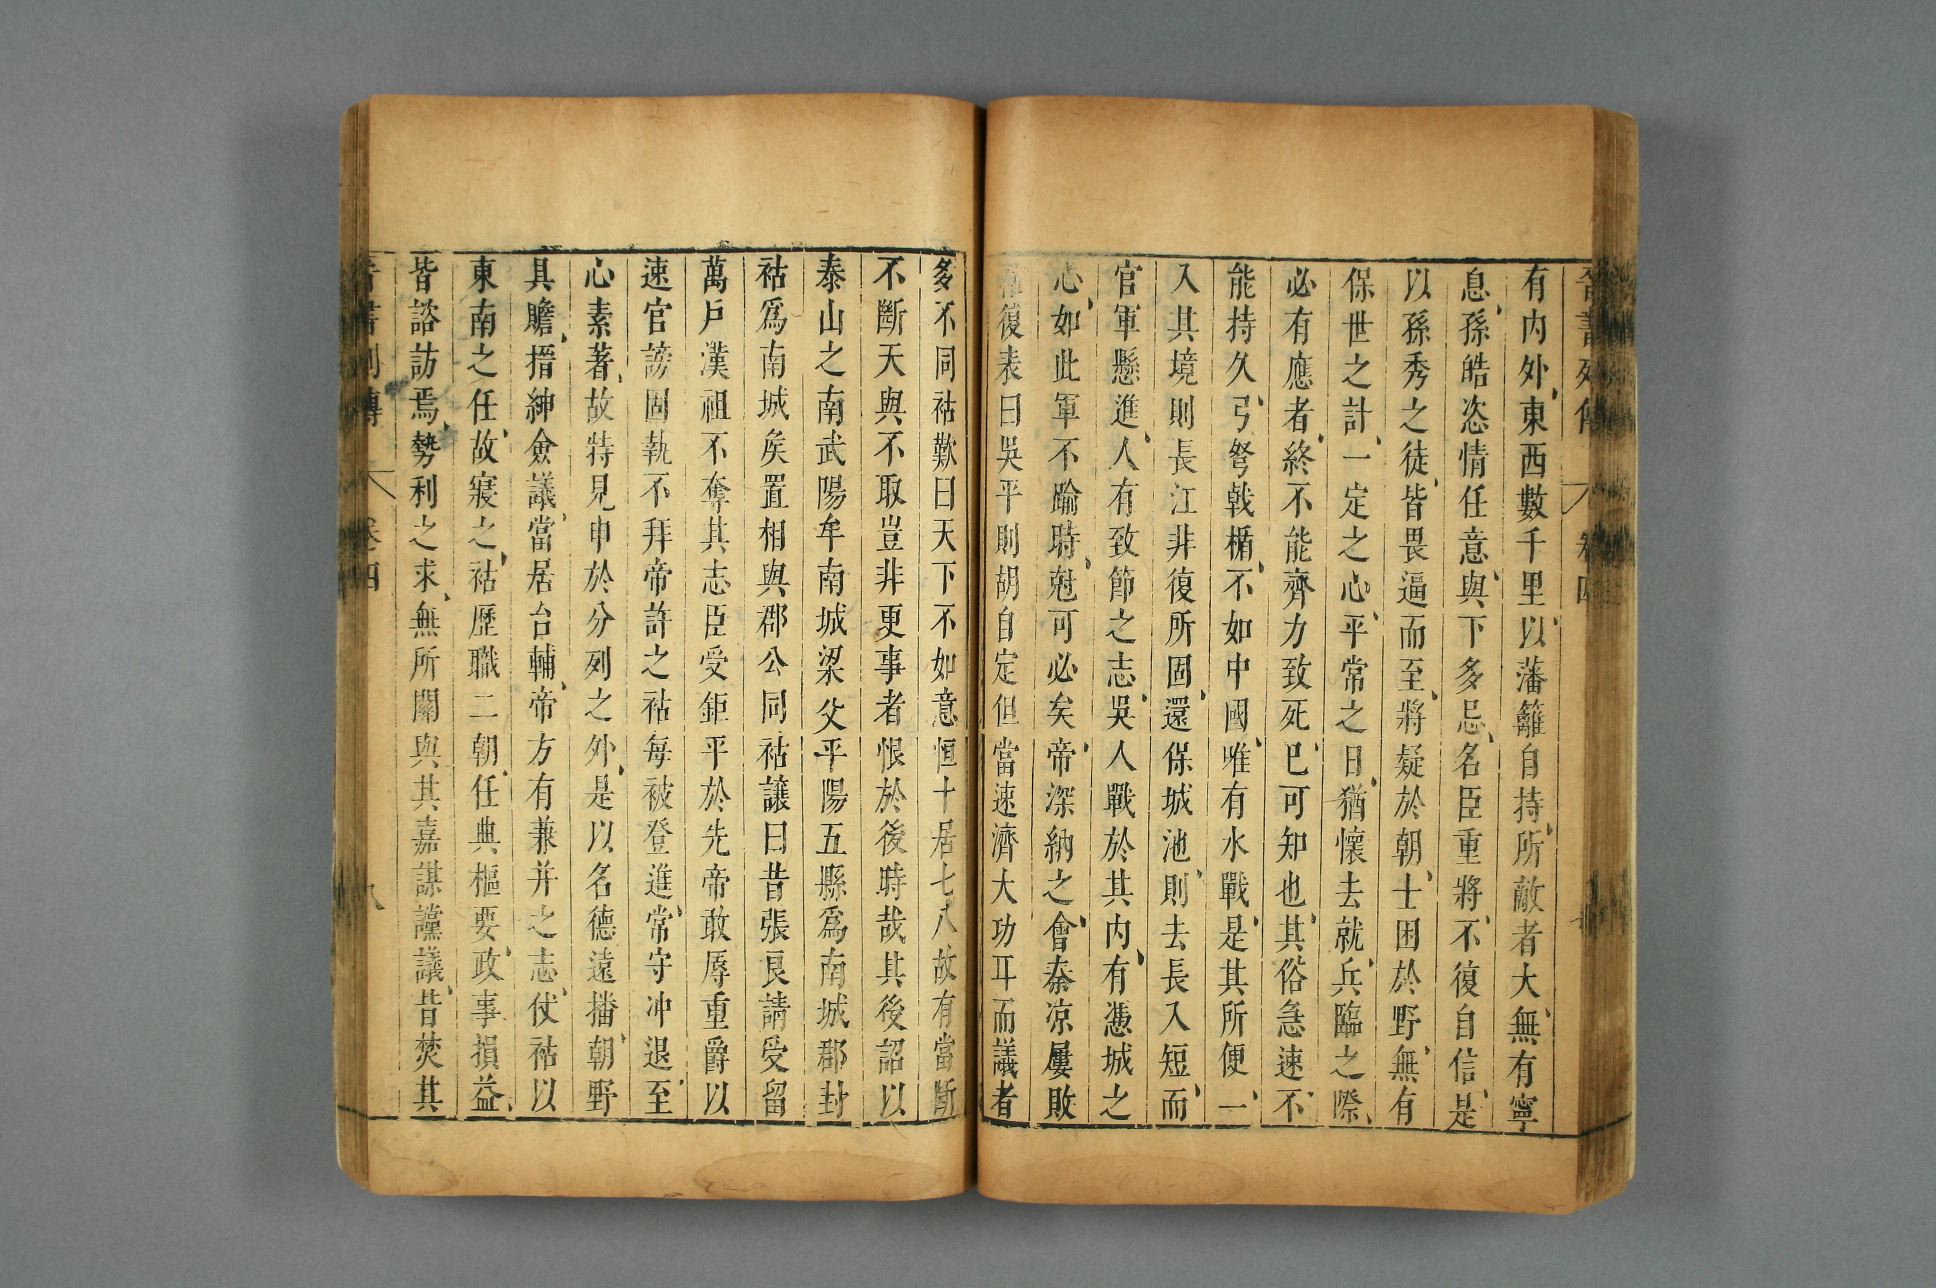 晉書列傳 卷四
有内外、東西數千里、以藩籬自持、所敵者大、無有寧
息、孫皓恣情任意、與下多忌、名臣重將、不復自信、是
以孫秀之徒、皆畏逼而至、將疑於朝、士困於野、無有
保世之計、一定之心、平常之日、猶懷去就、兵臨之際、
必有應者、終不能齊力致死、已可知也、其俗急速、不
能持久、弓弩戟楯、不如中國、唯有水戰、是其所便、一
入其境、則長江非復所固、還保城池、則去長入短、而
官軍懸進、人有致節之志、吳人戰於其内、有憑城之
心、如此、軍不踰時、尅可必矣、帝深納之、會秦凉屢敗
復表曰吳平則胡自定但當速濟大功耳而議者
多不同祜歎曰天下不如意恒十居七八故有當斷
不斷天與不取豈非更事者恨於後時哉其後詔以
泰山之南武陽牟南城梁父平陽五縣爲南城郡封
祜爲南城矦置相與郡公同祜讓曰昔張良請受留
萬戸漢祖不奪其志臣受鉅平於先帝敢辱重爵以
速官謗固執不拜帝許之祜每被登進、常守冲退、至
心素著、故特見申於分列之外、是以名德遠播、朝野
具瞻、搢紳僉議、當居台輔、帝方有兼并之志、仗祜以
東南之任、故寢之、祜歷職二朝、任典樞要、政事損益、
皆諮訪焉、勢利之求、無所關與、其嘉謀讜議、皆焚其
晉書列傳 卷四 八